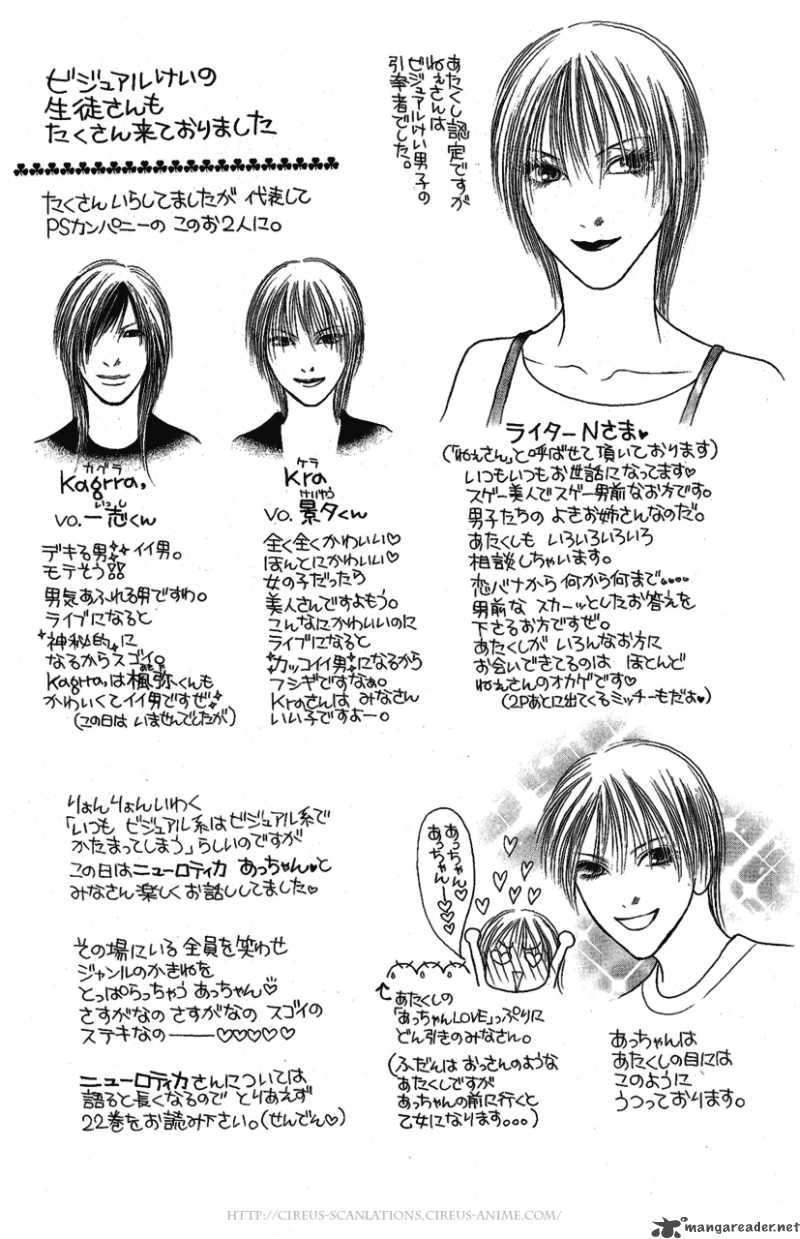 ビジュアルけいの
生徒さんも
たくさん来ておりました
たくさんいらしてましたが 代表して
PSカンパニーの このお2人に。
あたくし認定ですが
ねぇさんは
ビジュアルけい男子の
引率者でした。
カグラ
Kagrra,
いっし
vo.一志くん
デキる男 イイ男。
モテそう
男気あふれる男ですわ。
ライブになると
神秘的に
なるからスゴイ。
Kagrra,は楓弥くんも
かわいくてイイ男ですぜ
(この日は いませんでしたが)
ケラ
Kra
けいゆう
vo.景夕くん
全く全くかわいい♡
ほんとにかわいい♡
女の子だったら
美人さんですよもう。
こんなにかわいいのに
ライブになると
カッコイイ男になるから
フシギですなぁ。
Kraさんは みなさん
いい子ですよー。
ライターNさま♥
(「ねぇさん」と呼ばせて頂いております)
いつもいつもお世話になってます♥
スゲー美人でスゲー男前なお方です。
男子たちの よきお姉さんなのだ。
あたくしも いろいろいろいろ
相談しちゃいます。
恋バナから 何から何まで。。。。
男前な スカーッとしたお答えを
下さるお方ですぜ。
あたくしが いろんなお方に
お会いできてるのは ほとんど
ねぇさんのオカゲです♥
(2Pあとに出てくるミッチーもだよ♥)
りょんりょんいわく
「いつも ビジュアル系はビジュアル系で
かたまってしまう」らしいのですが
この日はニューロティカ あっちゃん♥と
みなさん楽しくお話ししてました♥
その場にいる 全員を笑わせ
ジャンルのかきねを
とっぱらっちゃう あっちゃん♡
さすがなの さすがなの スゴイの
ステキなの――♡♡♡♡♡
ニューロティカさんについては
語ると長くなるので とりあえず
22巻をお読み下さい。(せんでん♡)
あっちゃん♥
あっちゃーん♥♥
↑
あたくしの
「あっちゃんLOVE」っぷりに
どん引きのみなさん。
(ふだんは おっさんのような
あたくしですが
あっちゃんの前に行くと
乙女になります。。。)
あっちゃんは
あたくしの目には
このように
うつっております。
HTTP://CIREUS-SCANLATIONS,CIREUS-ANIME.COM/
mangareader.net